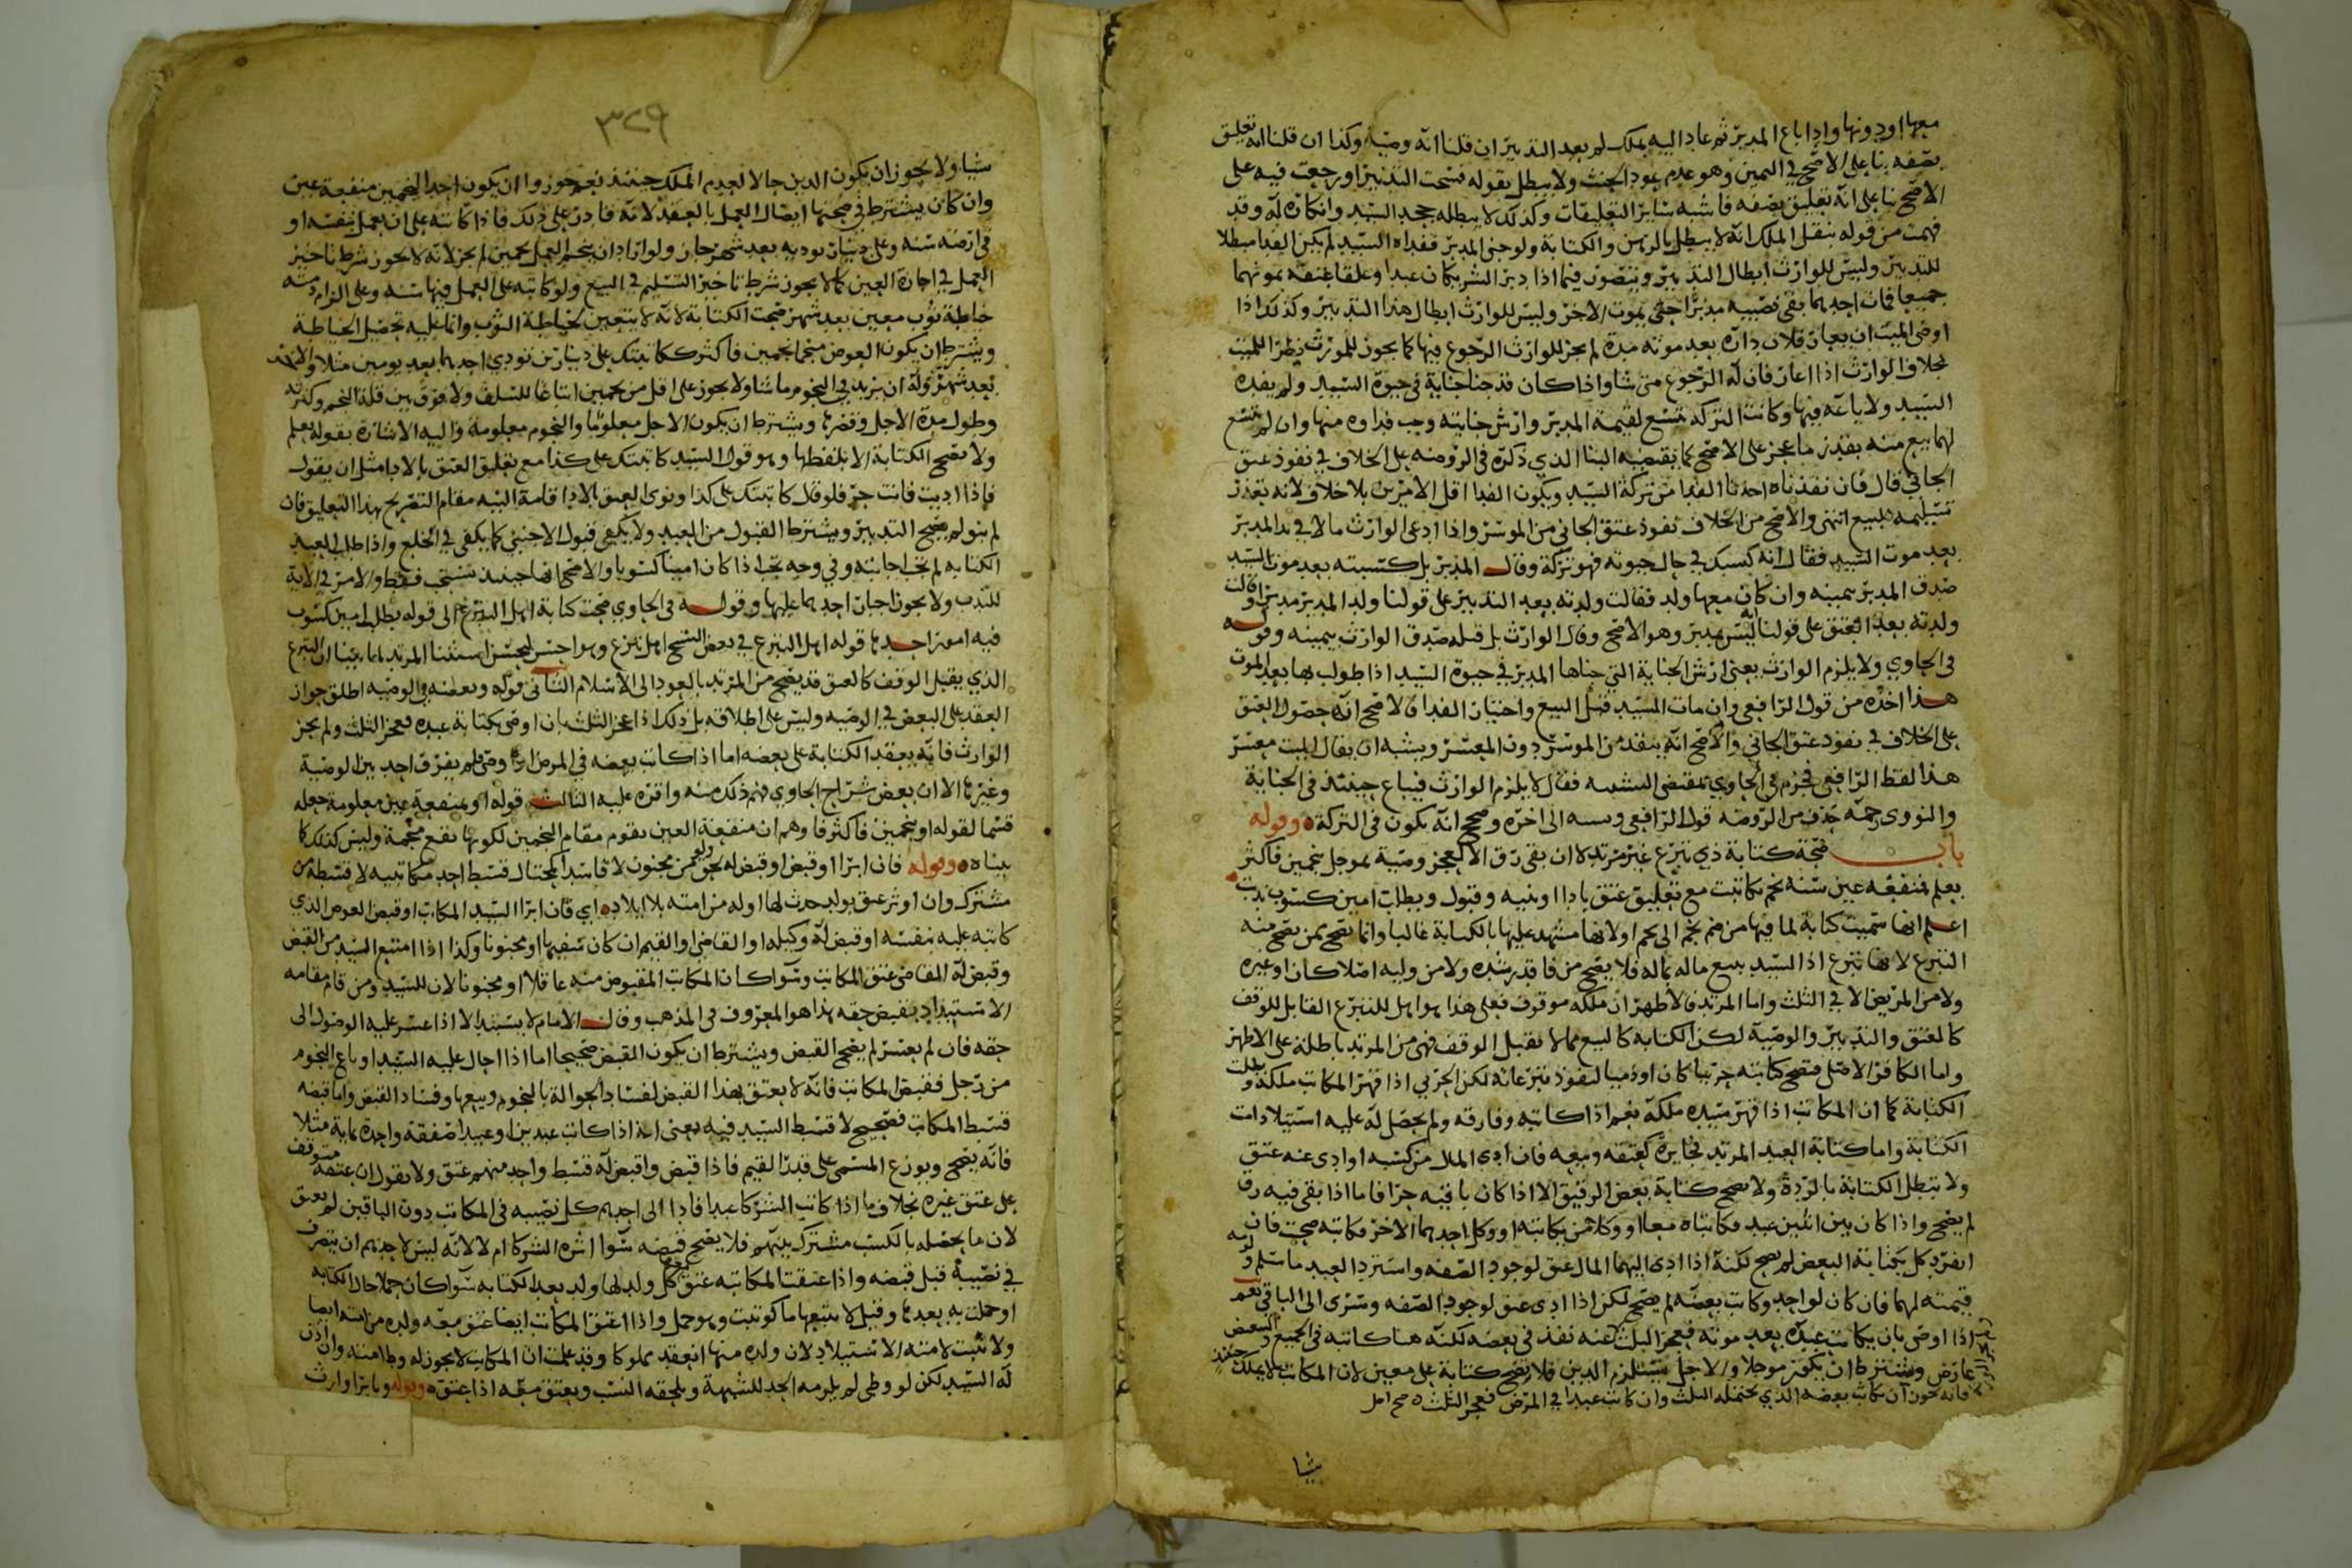 معها او دونها واذا باع المدبر ثم عاد اليه بملك لم يعد التدبير ان قلنا انه وصية وكذا ان قلنا انه تعليق
بصفه بنا على الاصح في اليمين وهو عدم عود الحنث ولا يبطل بقوله فسخت التدبير او رجعت فيه على
الاصح بنا على انه تعليق بصفه فاشبه سائر التعليقات وكذلك لا يبطله جحد السيد وانكاره له وقد
فهمت من قوله بنقل الملك انه لا يبطل بالرهن والكتابة ولو جنى المدبر ففداه السيد لم يكن الفدا مبطلا
للتدبير وليس للوارث ابطال التدبير ويتصور فيما اذا دبر الشريكان عبدا وعلقا عتقه بموتهما
جميعا فمات احدهما بقي نصيبه مدبرا حتى يموت الاخر وليس للوارث ابطال هذا التدبير وكذلك اذا
اوصى الميت ان يعار فلان داره بعد موته مدة لم يجز للوارث الرجوع فيها كما يجوز للمورث نظرا للميت
بخلاف الوارث اذا اعار فان له الرجوع متى شا واذا كان قد جنا جناية في حيوة السيد ولم يفده
السيد ولا باعه فيها وكانت التركه تتسع لقيمة المدبر وارش جنايته وجب فداوه منها وان لم تتسع
لهما بيع منه بقدر ما عجز على الاصح كما يقتضيه البنا الذي ذكره في الروضه على الخلاف في نفوذ عتق
الجاني قال فان نفذناه اخذنا الفدا من تركة السيد ويكون الفدا اقل الامرين بلا خلاف لانه تعذر
تسليمه للبيع انتهى والاصح من الخلاف نفوذ عتق الجاني من الموسر واذا ادعى الوارث مالا في يد المدبر
بعد موت السيد فقال انه كسبك في حال حيوته فهو تركة وقال المدبر بل كسبته بعد موت السيد
صدق المدبر بيمينه وان كان معها ولد فقالت ولدته بعد التدبير على قولنا ولد المدبر مدبر او قالت
ولدته بعد العتق على قولنا انه ليس بمدبر وهو الاصح وقال الوارث بل قبله صدق الوارث بيمينه وقوله
في الحاوي ولا يلزم الوارث يعني ارش الجناية التي جناها المدبر في حيوة السيد اذا طولب بها بعد الموت
هذا اخذه من قول الرافعي وان مات السيد قبل البيع واختيار الفدا فالاصح انه حصول العتق
على الخلاف في نفوذ عتق الجاني والاصح انه ينفذ من الموسر دون المعسر ويشبه ان يقال الميت معسر
هذا لفظ الرافعي فجزم في الحاوي بمقتضى التشبيه فقال لا يلزم الوارث فيباع حينئذ في الجناية
والنووي رحمه حذف من الروضه قول الرافعي ويشبه الى اخره وصحح انه يكون في التركة وقوله
باب صحة كتابة ذي تبرع غير مرتد لا ان بقي رق الا لعجز وصية بموجل نجمين فاكثر
يعلم فمنفعه عين سنه نجم بكاتبت مع تعليق عتق بادا او نيه وقبول وبطلب امين كسوب ندبت
اعلم انها سميت كتابة لما فيها من ضم نجم الى نجم او لانها مشهد عليها بالكتابة غالبا وانما تصح ممن يصح منه
التبرع لانها تبرع اذ السيد يبيع ماله بماله فلا يصح من فاقد رشده ولا من وليه اصلا كان او غيره
ولا من المريض الا في الثلث واما المرتد فالاظهر ان ملكه موقوف فعلى هذا هو اهل للتبرع القابل للوقف
كالعتق والتدبير والوصية لكن الكتابه كالبيع مما لا تقبل الوقف فهي من المرتد باطلة على الاظهر
واما الكافر الاصلي فتصح كتابته حربيا كان او ذميا لنفوذ تبرعاته لكن الحربي اذا قهر المكاتب ملكه وبطلت
الكتابة كما ان المكاتب اذا قهر سيده ملكه نعم اذا كاتبه وفارقه ولم يحصل له عليه استيلا دامت
الكتابة واما كتابة العبد المرتد فجايزة كعتقه وبيعه فان ادى المال من كسبه او ادي عنه عتق
ولا تبطل الكتابة بالردة ولا تصح كتابة بعض الرقيق الا اذا كان باقيه حرا فاما اذا بقي فيه رق
لم يصح واذا كان بين اثنين عبد فكاتباه معا او وكلا من يكاتبه او وكل احدهما الاخر فكاتبه صحت فان
انفرد كل بكتابة البعض لم يصح لكنه اذا ادى اليهما المال عتق لوجود الصفه واسترد العبد ما سلم وله
قيمته لهما فان كان لواحد وكاتب بعضه لم يصح لكن اذا ادى عتق لوجود الصفه وسرى الى الباقي نعم
اذا اوصى بان يكاتب عبده بعد موته فعجز الثلث عنه نفذ في بعضه لكنه هنا كاتبه في الجميع والتبعيض
عارض ويشترط ان يكون موجلا والاجل يستلزم الدين فلا تصح كتابة على معين لان المكاتب لا يملك حينئذ
فانه يجوز ان يكاتب بعضه الذي يحتمله الثلث وان كاتب عبدا في المرض فعجز الثلث صح اصل
شيا
٣٢٩
شيا ولا يجوز ان يكون الدين حالا لعدم الملك حينئذ نعم جوزوا ان يكون احد النجمين منفعة عين
وان كان يشترط في صحتها ايصال العمل بالعقد لانه قادر على ذلك فاذا كاتبه على ان يعمل بنفسه او
في ارضه سنه وعلى دينار يوديه بعد شهر جاز ولو اراد ان ينجم العمل نجمين لم يجز لانه لا يجوز شرط تاخير
العمل في اجارة العين كما لا يجوز شرط تاخير التسليم في البيع ولو كاتبه على العمل فيها سنه وعلى الزام ذمته
خياطة ثوب معين بعد شهر صحت الكتابة لانه لا يتعين لخياطة الثوب وانما عليه تحصيل الخياطة
ويشترط ان يكون العوض منجما نجمين فاكثر ككاتبتك على دينارين تودي احدهما بعد يومين مثلا والاخر
بعد شهر وله ان يزيد في النجوم ما شا ولا يجوز على اقل من نجمين اتباعا للسلف ولا فرق بين قلة النجم وكثرته
وطول مدة الاجل وقصرها ويشترط ان يكون الاجل معلوما والنجوم معلومة واليه الاشارة بقوله يعلم
ولا تصح الكتابة الا بلفظها وهو قول السيد كاتبتك على كذا مع تعليق العتق بالادا مثل ان يقول
فاذا اديت فانت حر فلو قال كاتبتك على كذا ونوى العتق بالادا قامة النيه مقام التصريح بهذا التعليق فان
لم ينو لم يصح التدبير ويشترط القبول من العبد ولا يكفي قبول الاجنبي كما يكفي في الخلع واذا طلب العبد
الكتابه لم تجب اجابته وفي وجه تجب اذا كان امينا كسوبا والاصح انها حينئذ تستحب فقط والامر في الاية
للندب ولا يجوز اجبار احدهما عليها وقوله في الحاوي صحت كتابة اهل التبرع الى قوله بطلب امين كسوب
فيه امور احدها قوله اهل التبرع في بعض النسخ اهل تبرع وهو احسن ليحسن استثنا المرتد لما بينا ان التبرع
الذي يقبل الوقف كالعتق قد يصح من المرتد بالعود الى الاسلام الثاني قوله وبعضه في الوصيه اطلق جواز
العقد على البعض في الوصيه وليس على اطلاقه بل ذلك اذا عجز الثلث بان اوصى بكتابة عبده فعجز الثلث ولم يجز
الوارث فانه يعقد الكتابة على بعضه اما اذا كاتب بعضه في المرض او اوصى فلم يفرق احد بين الوصية
وغيرها الا ان بعض شراح الحاوي فهم ذلك منه واقره عليه الثالث قوله او بمنفعة عين معلومة جعله
قسما لقوله او بنجمين فاكثر فاوهم ان منفعة العين يقوم مقام النجمين لكونها تقع منجمة وليس كذلك كما
بيناه وقوله فان ابرا او قبض او قبض له نحو قيم ولو من مجنون لا فاسدا كمحتال قسط احد مكاتبيه لا قسطه من
مشترك وان اوثر عتق بولد حدث لها او له من امته بلا ايلاد اي فان ابرا السيد المكاتب او قبض العوض الذي
كاتبه عليه بنفسه او قبض له وكيله او القاضي او القيم ان كان سفيها او مجنونا وكذا اذا امتنع السيد من القبض
وقبض له القاضي عتق المكاتب وسوا كان المكاتب المقبوض منه عاقلا او مجنونا لان للسيد ومن قام مقامه
الاستبداد بقبض حقه هذا هو المعروف في المذهب وقال الامام لا يستبد الا اذا عسر عليه الوصول الى
حقه فان لم يعسر لم يصح القبض ويشترط ان يكون القبض صحيحا اما اذا احال عليه السيد او باع النجوم
من رجل فقبض المكاتب فانه لا يعتق بهذا القبض لفساد الحوالة بالنجوم وبيعها وفساد القبض واما قبضه
قسط المكاتب فصحيح لا قسط السيد فيه يعني انه اذا كاتب عبدين او عبيدا صفقة واحدة بماية مثلا
فانه يصح ويوزع المسمى على قدر القيم فاذا قبض او اقبض له قسط واحد منهم عتق ولا نقول ان عتقه متوقف
على عتق غيره بخلاف ما اذا كاتب الشركا عبدا فادا الى احدهم كل نصيبه في المكاتب دون الباقين لم يعتق
لان ما يحصله بالكسب مشترك بينهم فلا يصح قبضه سوا اثره الشركا ام لا لانه ليس لاحدهم ان يتصرف
في نصيبه قبل قبضه واذا عتقت المكاتبه عتق معها كل ولد لها ولد بعد الكتابه سوا كان حملا حال الكتابه
او حملت به بعدها وقيل لا يتبعها ما كوتبت وهو حمل واذا عتق المكاتب ايضا عتق معه ولده من امته ايضا
ولا تثبت لامته الاستيلاد لان ولده منها انعقد مملوكا وقد علمت ان المكاتب لا يجوز له وطء امته وان اذن
له السيد لكن لو وطى لم يلزمه الحد للشبهة ويلحقه النسب ويعتق معه اذا عتق وقوله وبابرا وارث